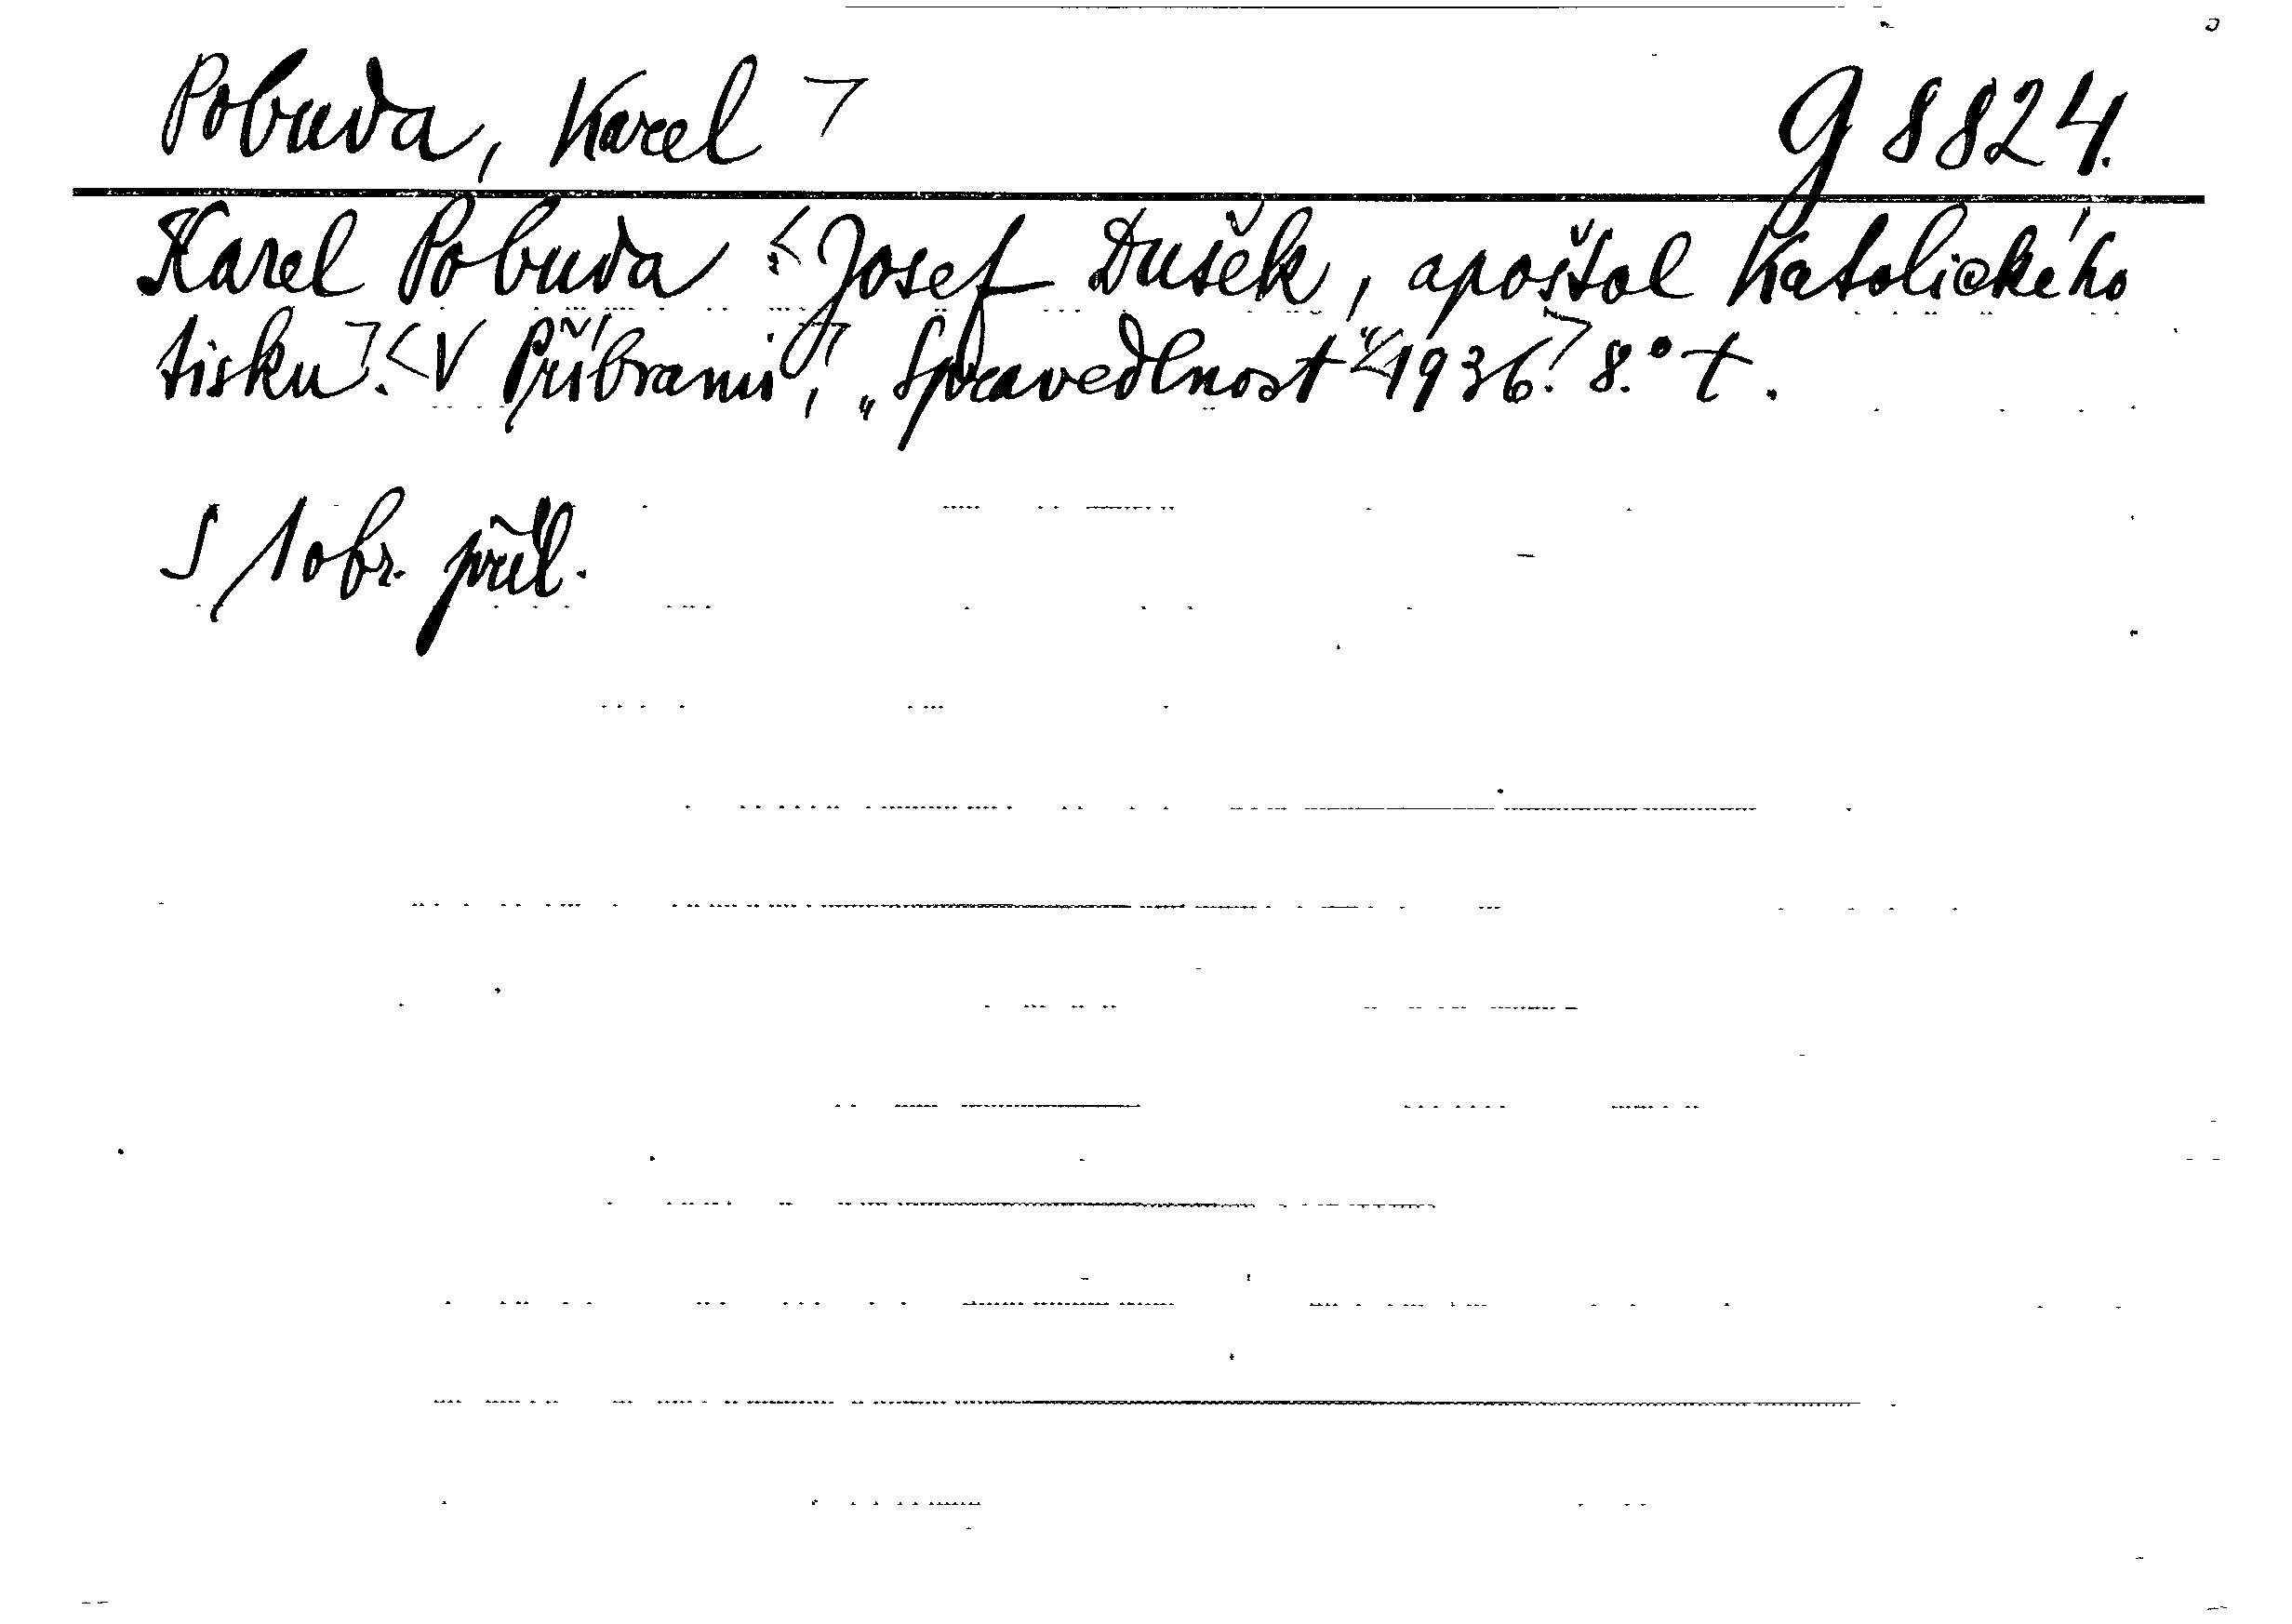 Pobuda, Karel g 8824.
Karel Pobuda < Josef Dušek, apoštol katolického
tisku>. <V Příbrami, „Spravedlnost“ <1936.> 8.° t.
S 1 obr. příl.